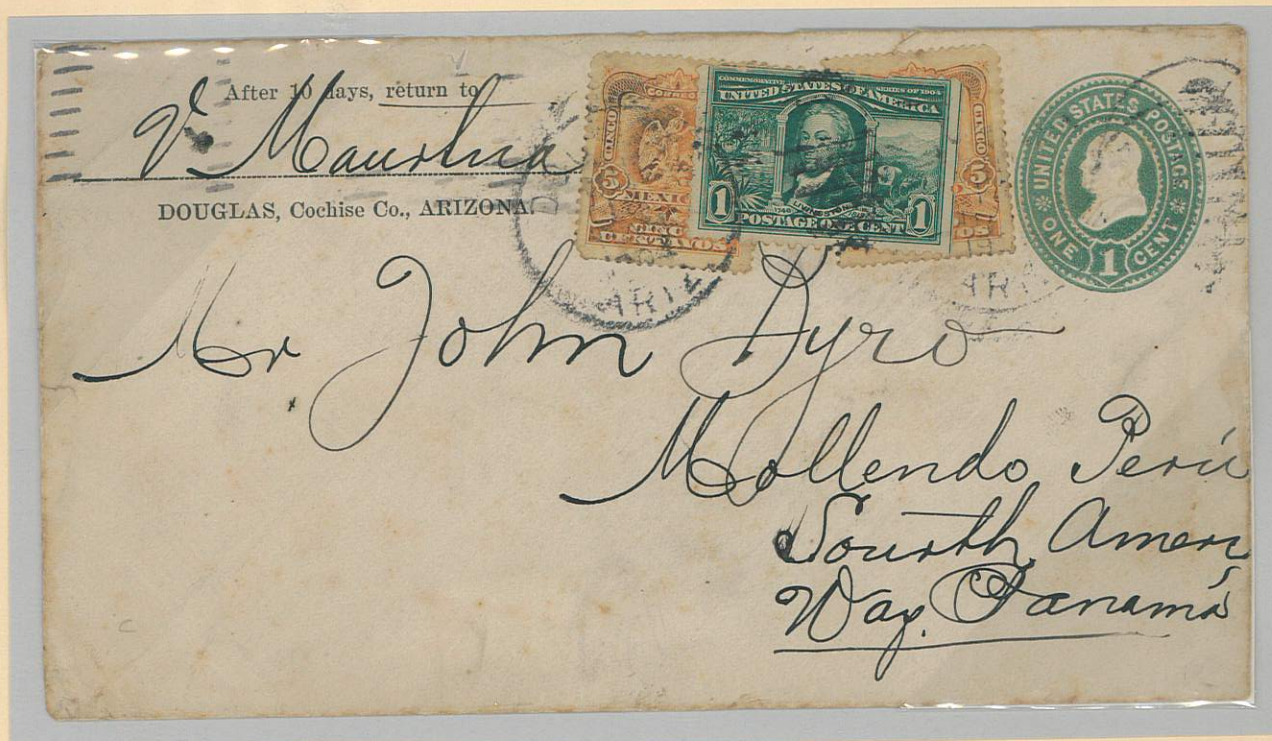 After 10 days, return to
V. Maurtua
DOUGLAS, Cochise Co., ARIZONA.
CORREOS
CINCO
5
MEXICO
CINCO
CENTAVOS
COMMEMORATIVE SERIES OF 1904
UNITED STATES OF AMERICA
1 LIVINGSTON 1
POSTAGE ONE CENT
CINCO
5
OS
UNITED STATES POSTAGE
ONE 1 CENT
ARIZ
ARI
Mr John Dyro
Mollendo Perú
Sourth Amer
Way. Panamá